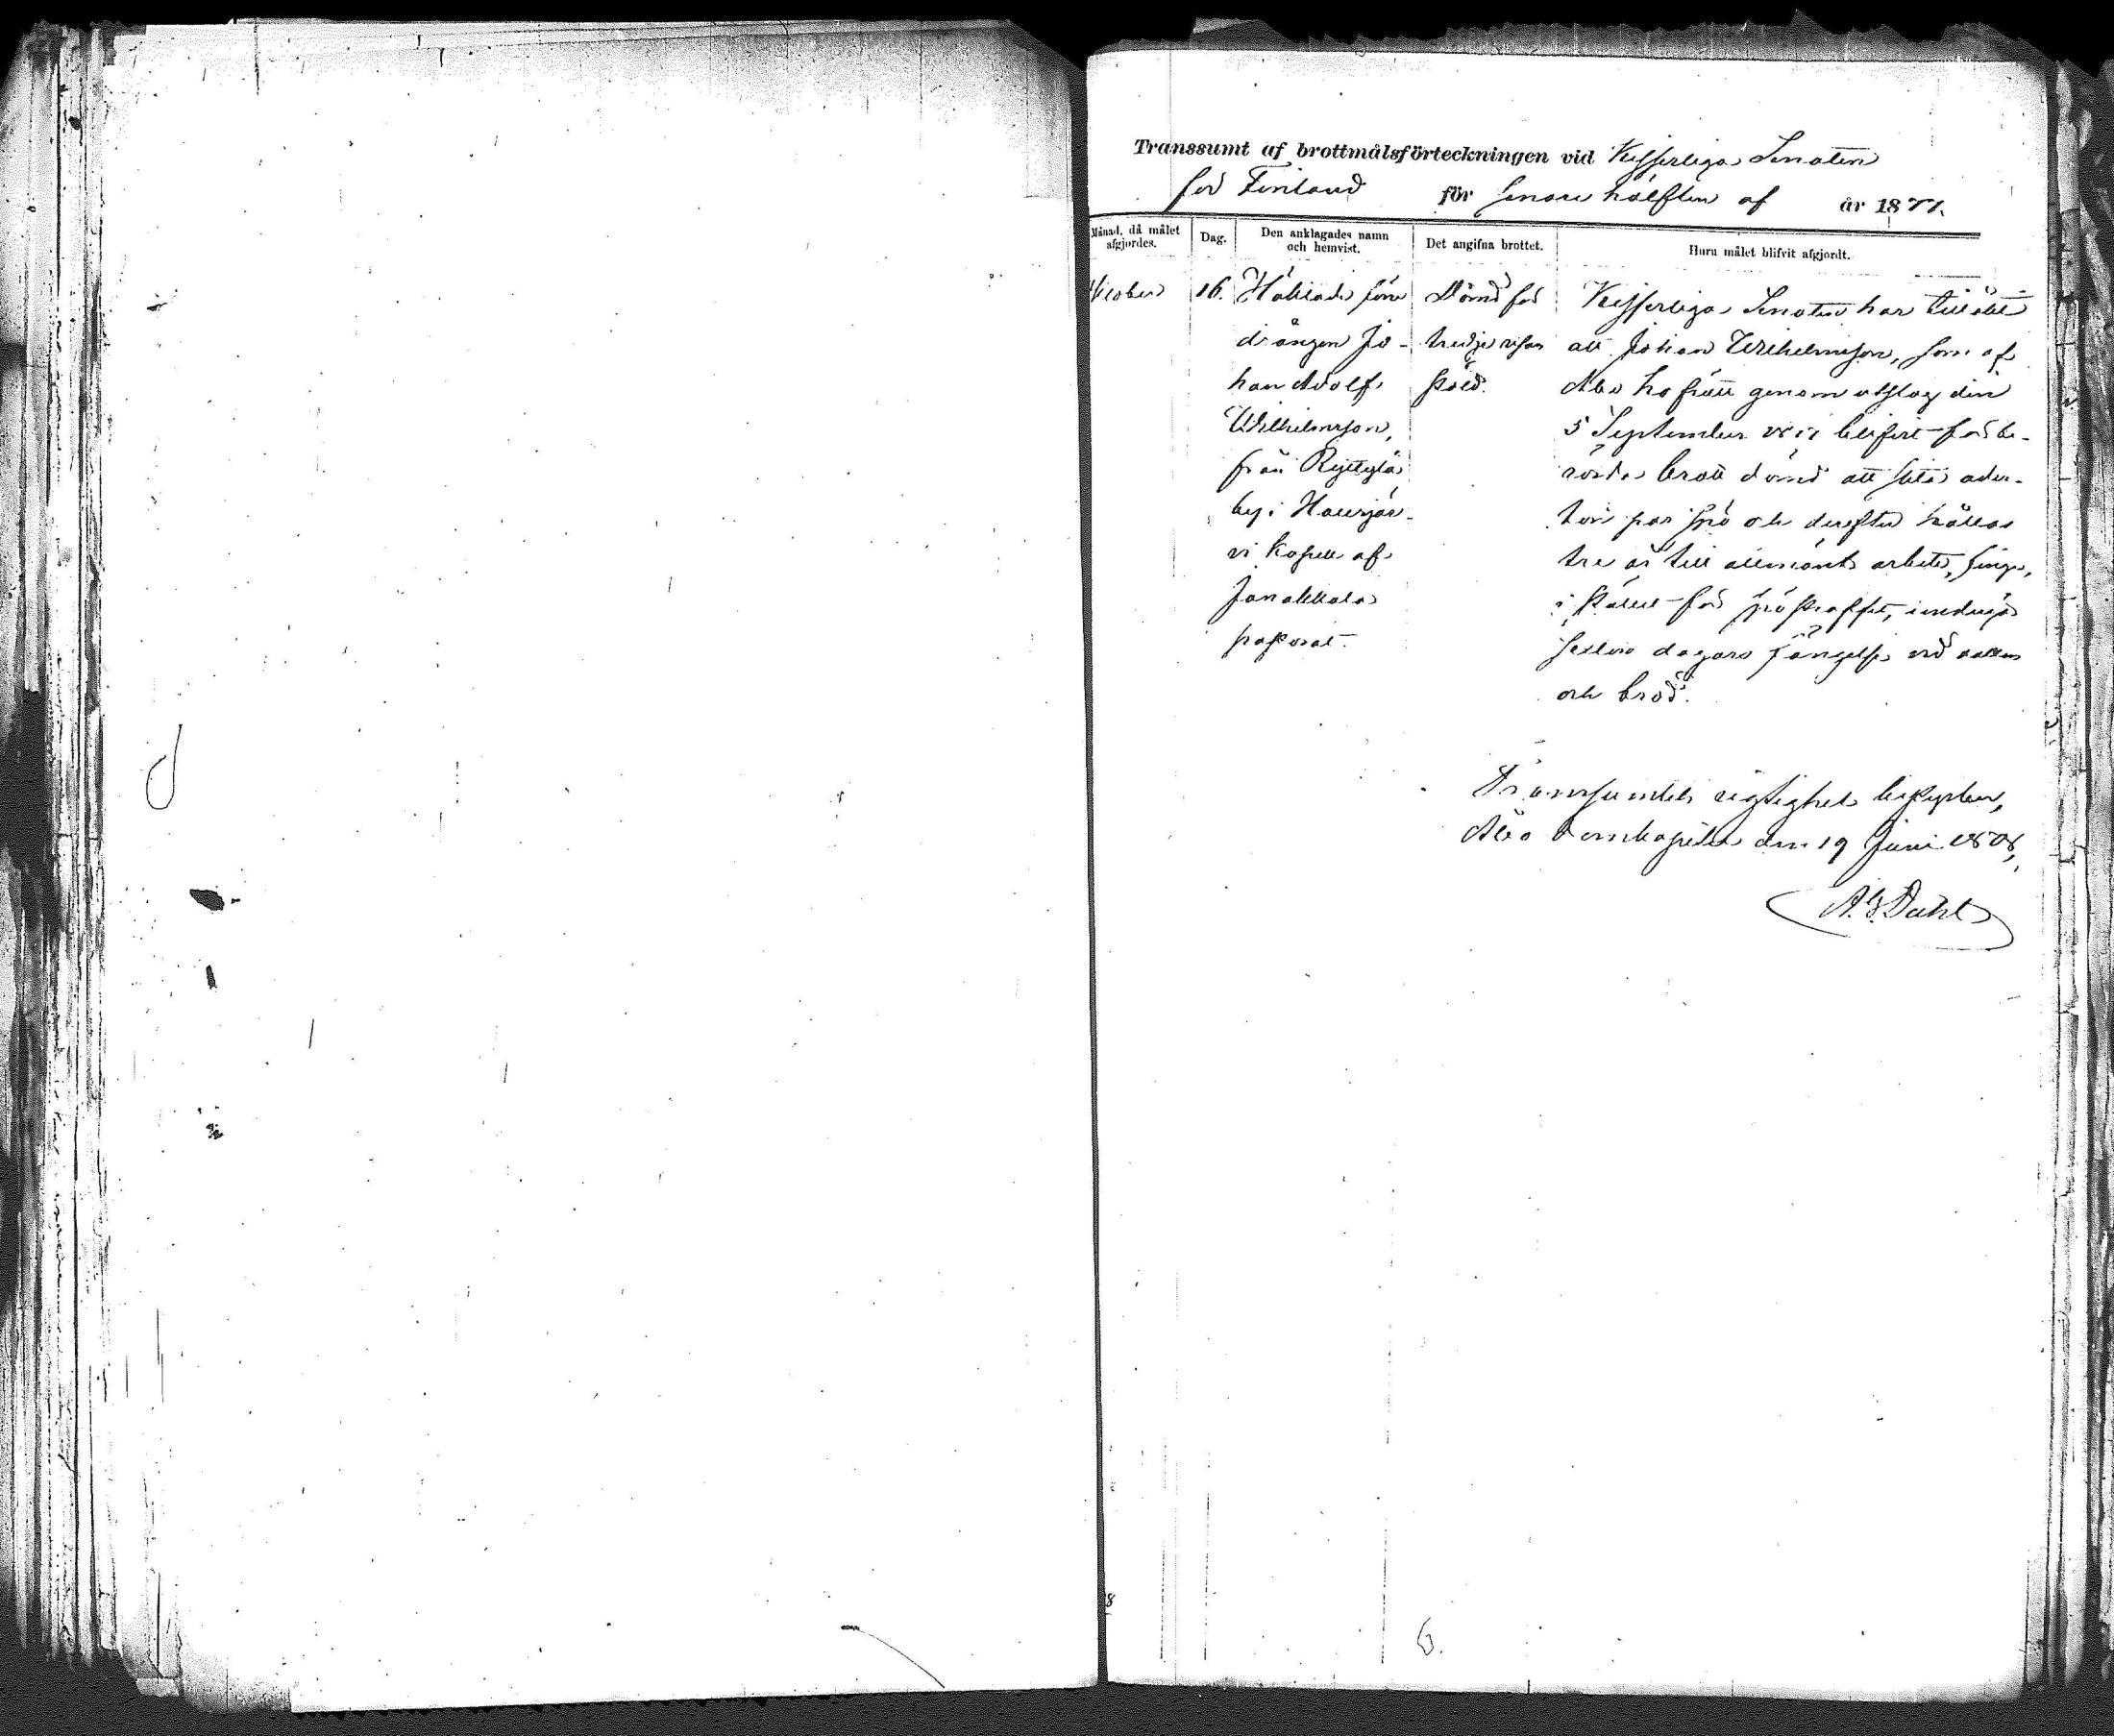 Transsumt af brottmålsförteckningen vid Kejserliga Senaten
för Finland för senare hälften af år 1877.
Månad, då målet afgjordes. Dag. Den anklagades namn och hemvist. Det angifna brottet. Huru målet blifvit afgjordt.
October 16. Häktade förre Dömd för Kejserliga Senaten har tillåtit
drängen Jo- tredje resan att Johan Wilhelmsson, som af
han Adolf stöld. Åbo hofrätt genom utslag den
Wilhelmsson, 5 September 1877 blifvit för be-
från Ryttylä rörda brott dömd att slita ader-
by i Hausjär- ton par spö och derefter hållas
vi kapell af tre år till allmänt arbete, finge,
Janakkala i stället för spöstraffet, undergå
pastorat. sexton dagars fängelse vid vatten
och bröd.
Transsumtets rigtighet betygar,
Åbo Domkapitel den 19 Juni 1878,
A. G. Dahl
6.